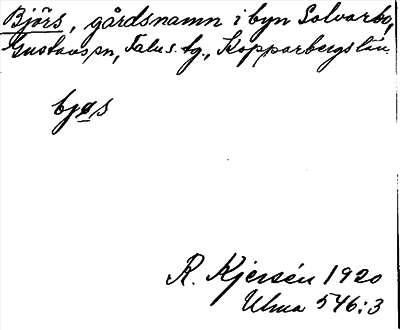 Björs, gårdsnamn i byn Solvarbo,
Gustavs sn, Falu s. tg., Kopparbergs län.
bjøs
R. Kjersén 1920
Ulma 546:3